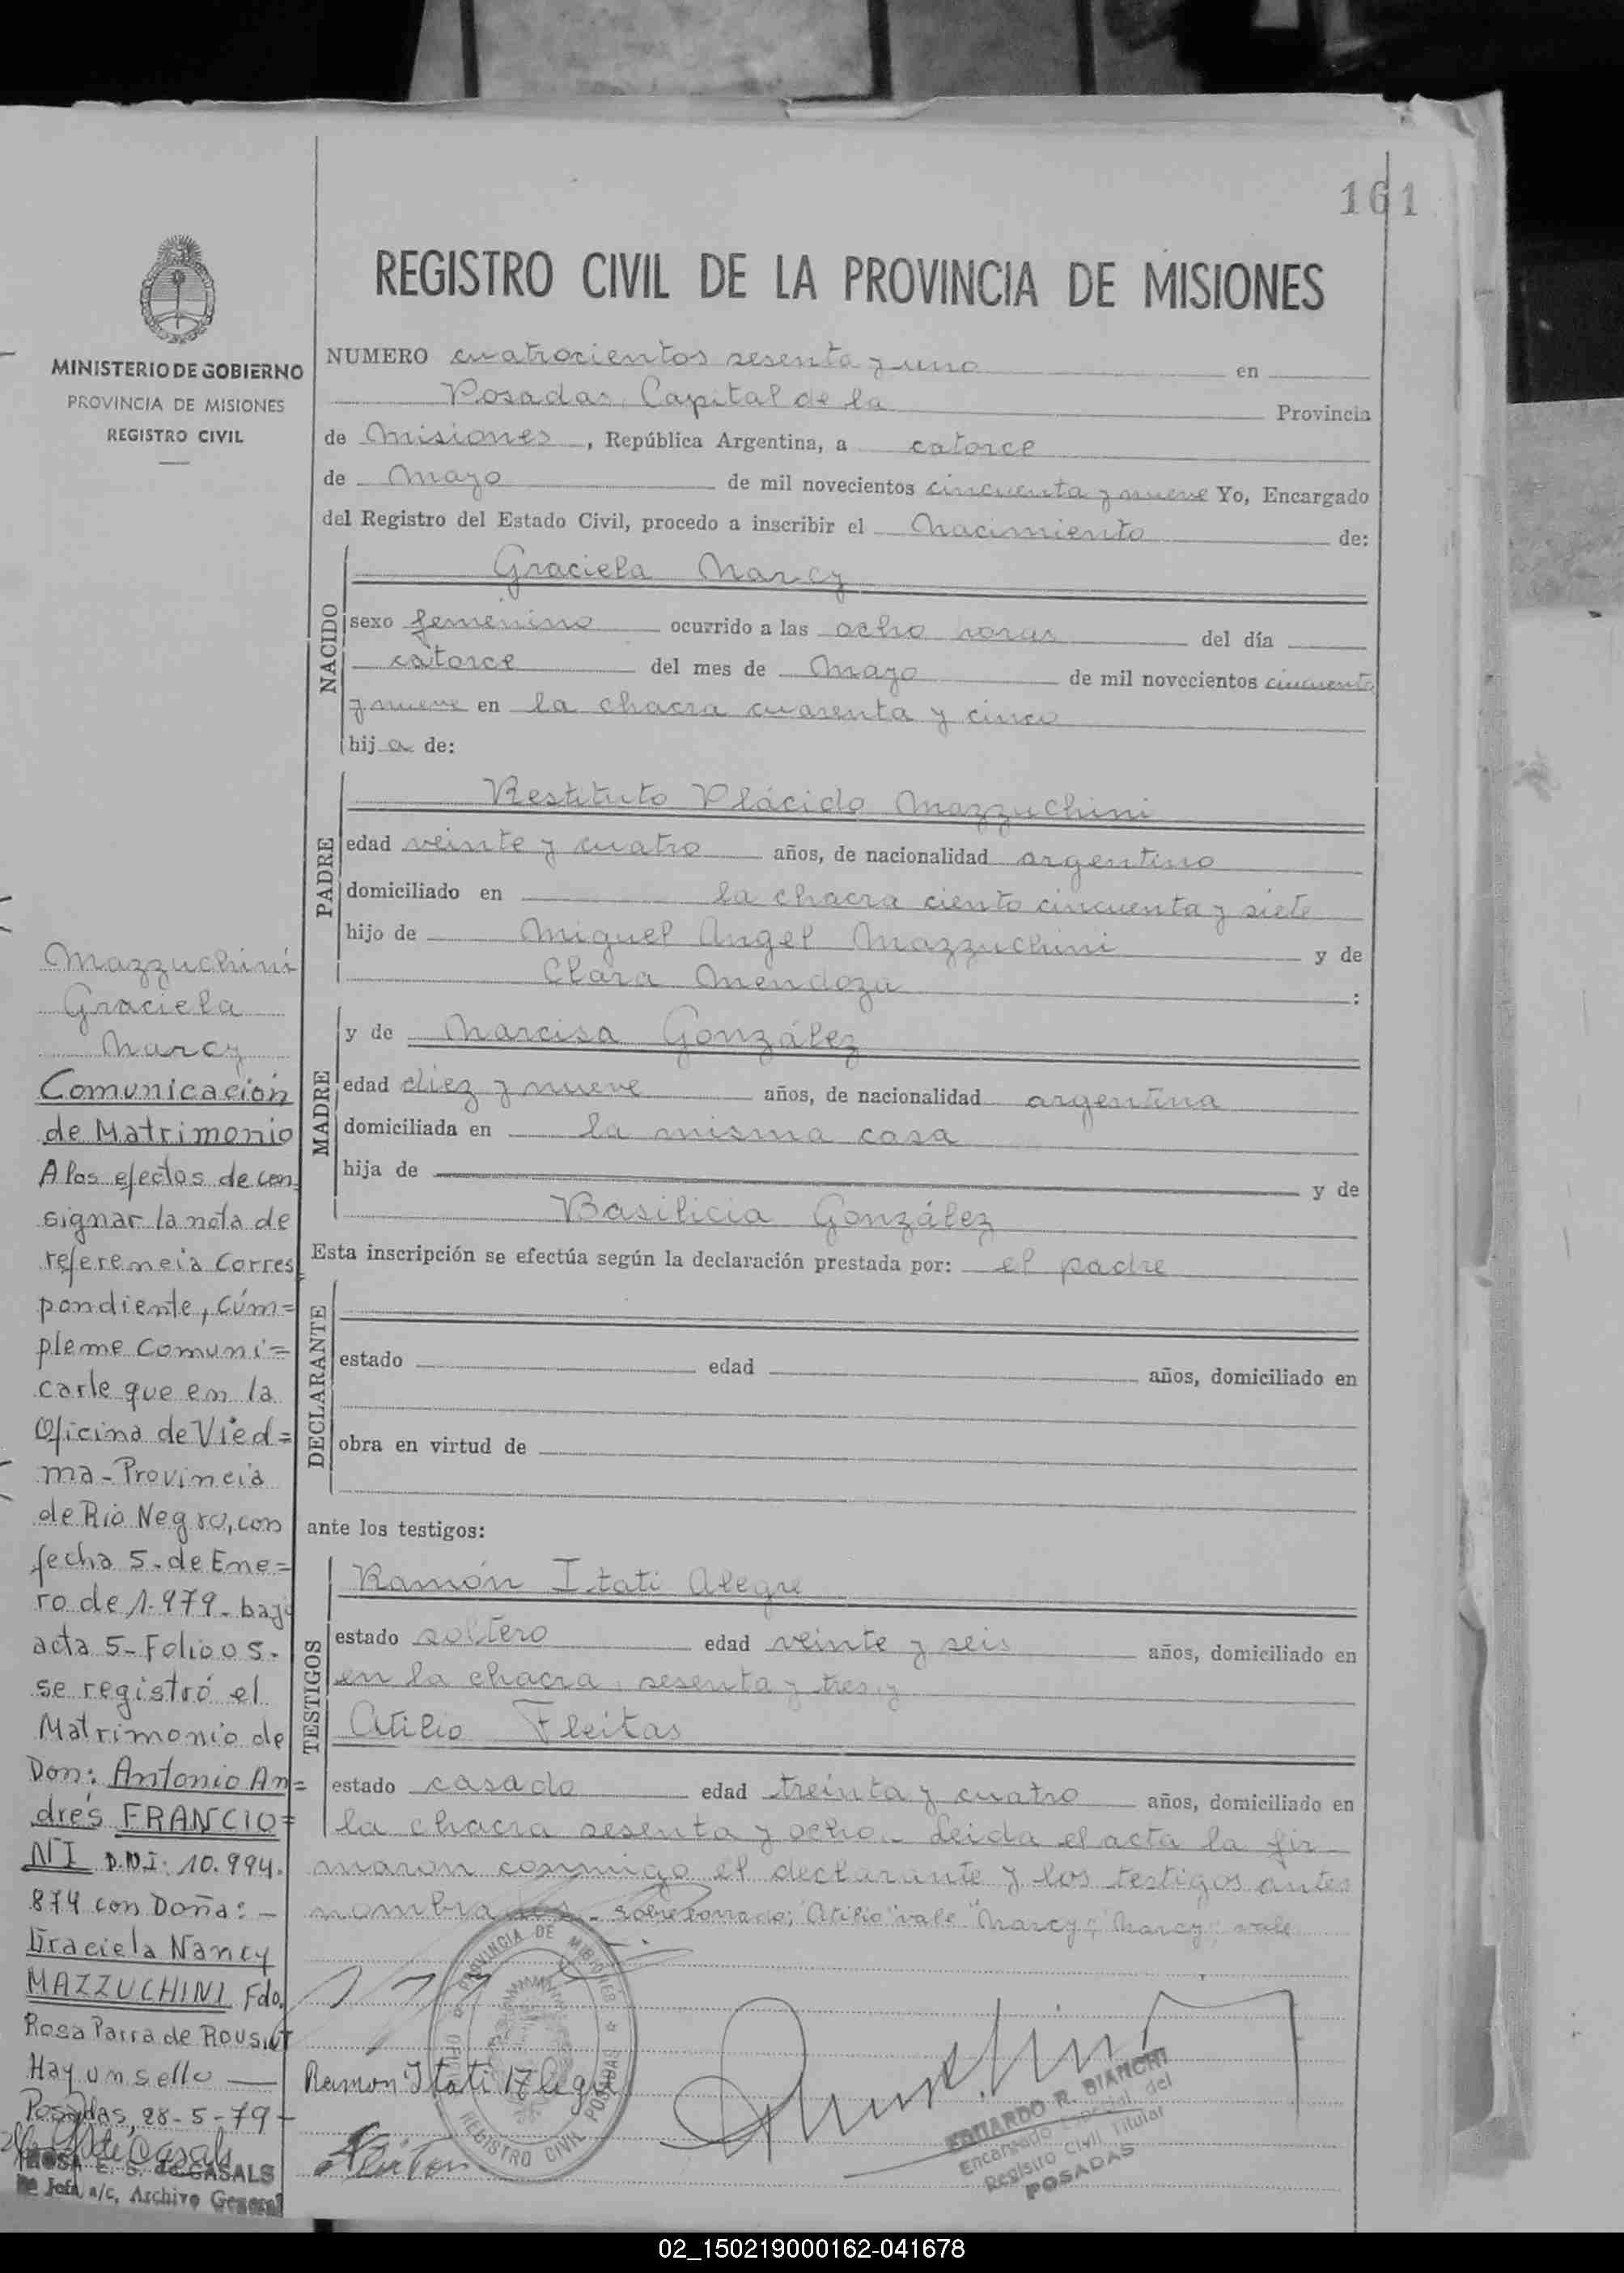 161
REGISTRO CIVIL DE LA PROVINCIA DE MISIONES
MINISTERIO DE GOBIERNO
PROVINCIA DE MISIONES
REGISTRO CIVIL
NUMERO cuatrocientos sesenta y uno en
Posadas, Capital de la Provincia
de Misiones, República Argentina, a catorce
de Mayo de mil novecientos cincuenta y nueve Yo, Encargado
del Registro del Estado Civil, procedo a inscribir el Nacimiento de:
NACIDO
Graciela Narcy
sexo femenino ocurrido a las ocho horas del día
catorce del mes de Mayo de mil novecientos cincuenta
y nueve en la chacra cuarenta y cinco
hija de:
PADRE
Restituto Plácido Mazzuchini
edad veinte y cuatro años, de nacionalidad argentino
domiciliado en la chacra ciento cincuenta y siete
hijo de Miguel Angel Mazzuchini y de
Clara Mendoza :
MADRE
y de Narcisa González
edad diez y nueve años, de nacionalidad argentina
domiciliada en la misma casa
hija de y de
Basilicia González
Esta inscripción se efectúa según la declaración prestada por: el padre
DECLARANTE
estado edad años, domiciliado en
obra en virtud de
ante los testigos:
TESTIGOS
Ramón Itati Alegre
estado soltero edad veinte y seis años, domiciliado en
en la chacra, sesenta y tres y
Atilio Fleitas
estado casado edad treinta y cuatro años, domiciliado en
la chacra sesenta y ocho.- Leida el acta la fir-
maron conmigo el declarante y los testigos antes
nombrados.- Sobreborrado; "Atilio" vale "Narcy"; "Narcy" vale
Mazzuchini
Graciela
Narcy
Comunicación
de Matrimonio
A los efectos de con-
signar la nota de
referencia Corres
pondiente, Cúm=
pleme Comuni=
carle que en la
Oficina de Vied=
ma-Provincia
de Rio Negro, con
fecha 5.de Ene=
ro de 1.979.bajo
acta 5-Folio 05.
se registró el
Matrimonio de
Don: Antonio An=
drés FRANCIO=
NI D.N.I: 10.994.
874 con Doña: -
Graciela Nancy
MAZZUCHINI Fdo.
Rosa Parra de
Hay un sello —
Posadas, 28-5-79-
ROSA E. S. de CASALS
Jefa a/c, Archivo General
PROVINCIA DE MISIONES
REGISTRO CIVIL POSADAS
Ramon Itati Alegre
Fleitas
EDUARDO R. BIANCHI
Encargado Especial del
Registro Civil Titular
POSADAS
02_150219000162-041678